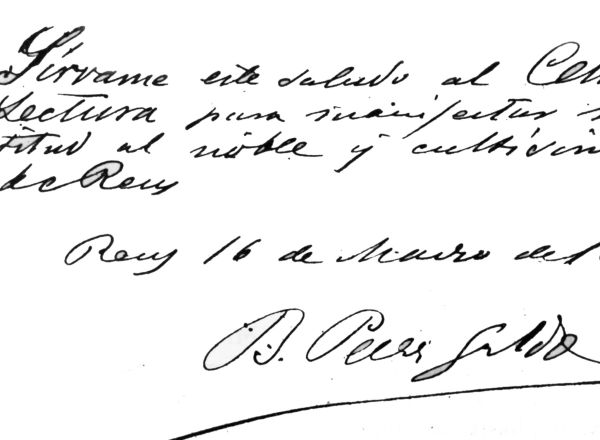 Sírvame este saludo al Cen
Lectura para manifestar
titud al noble y cultísim
de Reus
Reus 16 de Marzo de
B. Perez Galdo